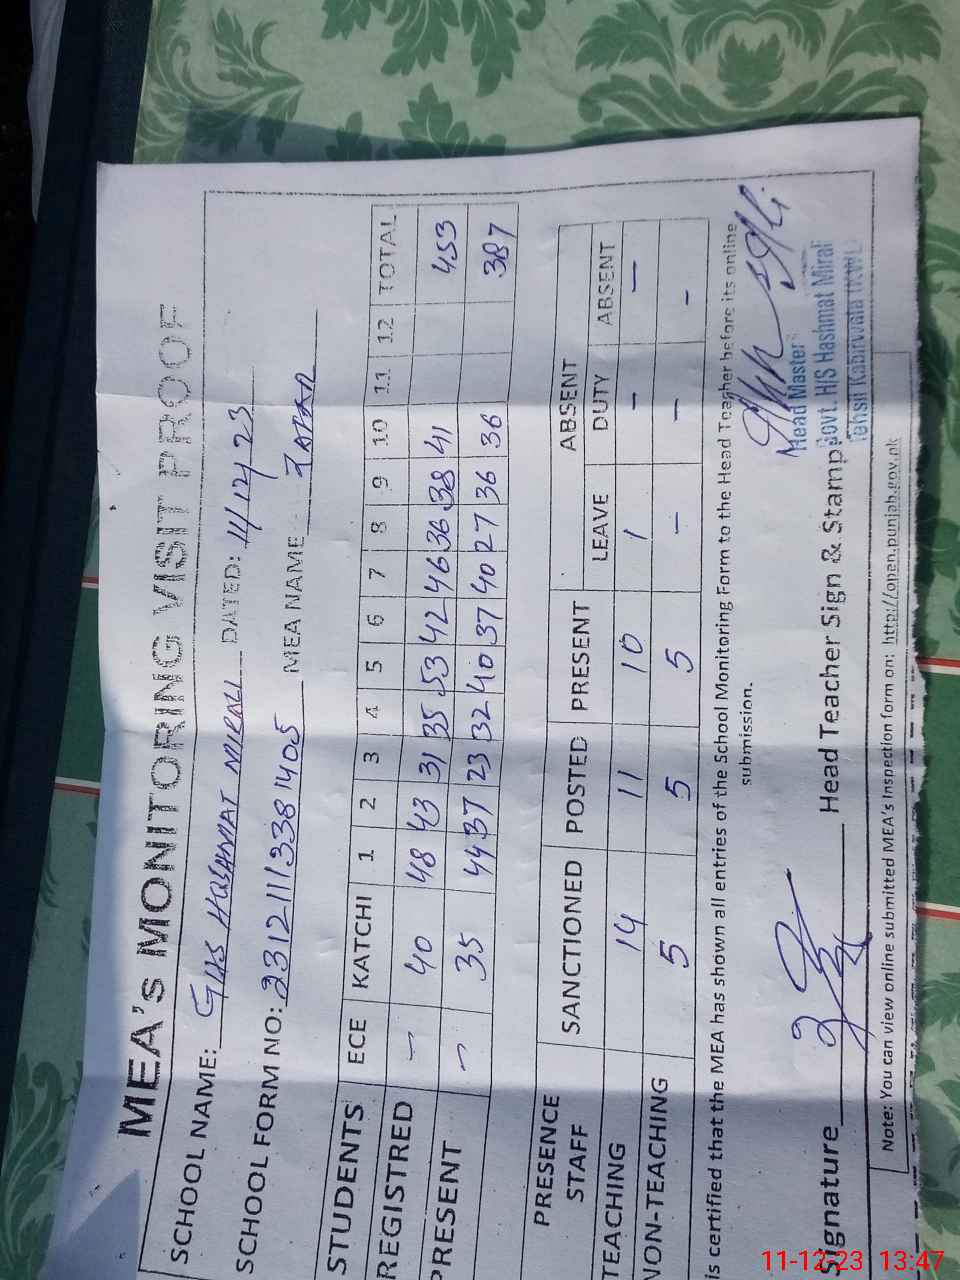 MEA's MONITORING VISIT PROOF
SCHOOL NAME: GHS HASHMAT MIRALI DATED: 11/12/23
SCHOOL FORM NO: 23121113381405 MEA NAME ZAFAR
STUDENTS ECE KATCHI 1 2 3 4 5 6 7 8 9 10 11 12 TOTAL
REGISTRED - 40 48 43 31 35 53 42 46 36 38 41 453
PRESENT - 35 44 37 23 32 40 37 40 27 36 36 387
PRESENCE STAFF SANCTIONED POSTED PRESENT ABSENT
LEAVE DUTY ABSENT
TEACHING 14 11 10 1 - -
NON-TEACHING 5 5 5 - - -
is certified that the MEA has shown all entries of the School Monitoring Form to the Head Teacher before its online
submission.
Signature Head Teacher Sign & Stamp:
Head Master
Govt. H/S Hashmat Mirali
Tehsil Kabirwala (KWL)
Note: You can view online submitted MEA's Inspection form on: http://open.punjab.gov.pk
11-12-23 13:47